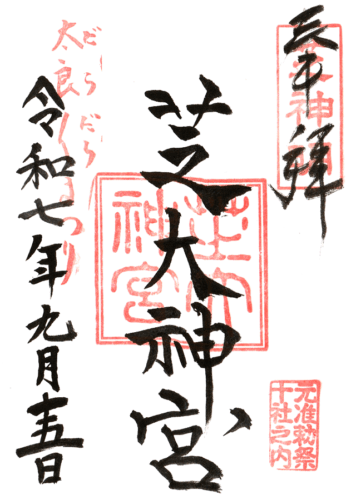 奉拜
芝大神宮
芝大神宮
元准勅祭
十社之内
だらだら
太良〱まつり
令和七年九月十五日